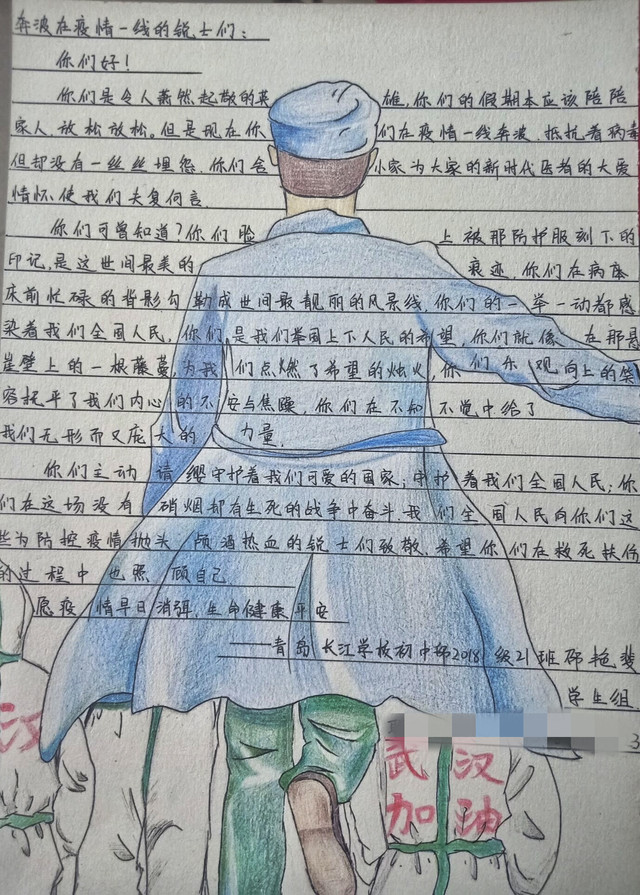 奔波在疫情一线的锐士们:
你们好!
你们是令人肃然起敬的英雄,你们的假期本应该陪陪
家人,放松放松。但是现在你们在疫情一线奔波,抵抗着病毒
但却没有一丝丝埋怨,你们舍小家为大家的新时代医者的大爱
情怀使我们夫复何言
你们可曾知道?你们脸上被那防护服刻下的
印记,是这世间最美的痕迹,你们在病床
床前忙碌的背影勾勒成世间最靓丽的风景线,你们的一举一动都感
染着我们全国人民,你们是我们举国上下人民的希望,你们就像在那悬
崖壁上的一根藤蔓,为我们点燃了希望的烛火,你们乐观向上的笑
容抚平了我们内心的不安与焦躁,你们在不知不觉中给了
我们无形而又庞大的力量.
你们主动请缨守护着我们可爱的国家;守护着我们全国人民;你
们在这场没有硝烟却有生死的战争中奋斗.我们全国人民向你们这
些为防控疫情抛头颅洒热血的锐士们致敬,希望你们在救死扶伤
的过程中也照顾自己
愿疫情早日消弭,生命健康平安
——青岛长江学校初中部2018级21班邵艳斐
学生组
3
汉
武汉
加油